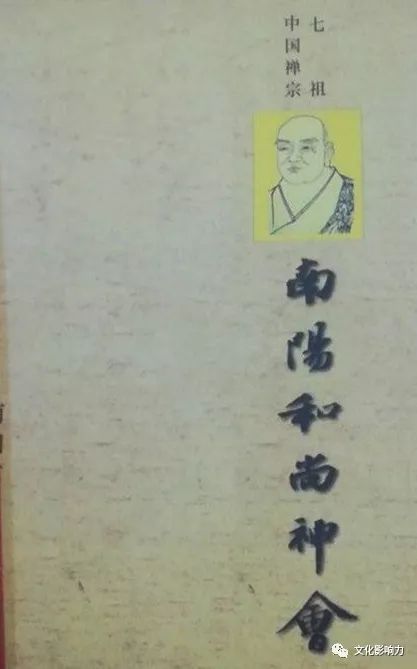 七祖
中国禅宗
南陽和尚神會
文化影响力